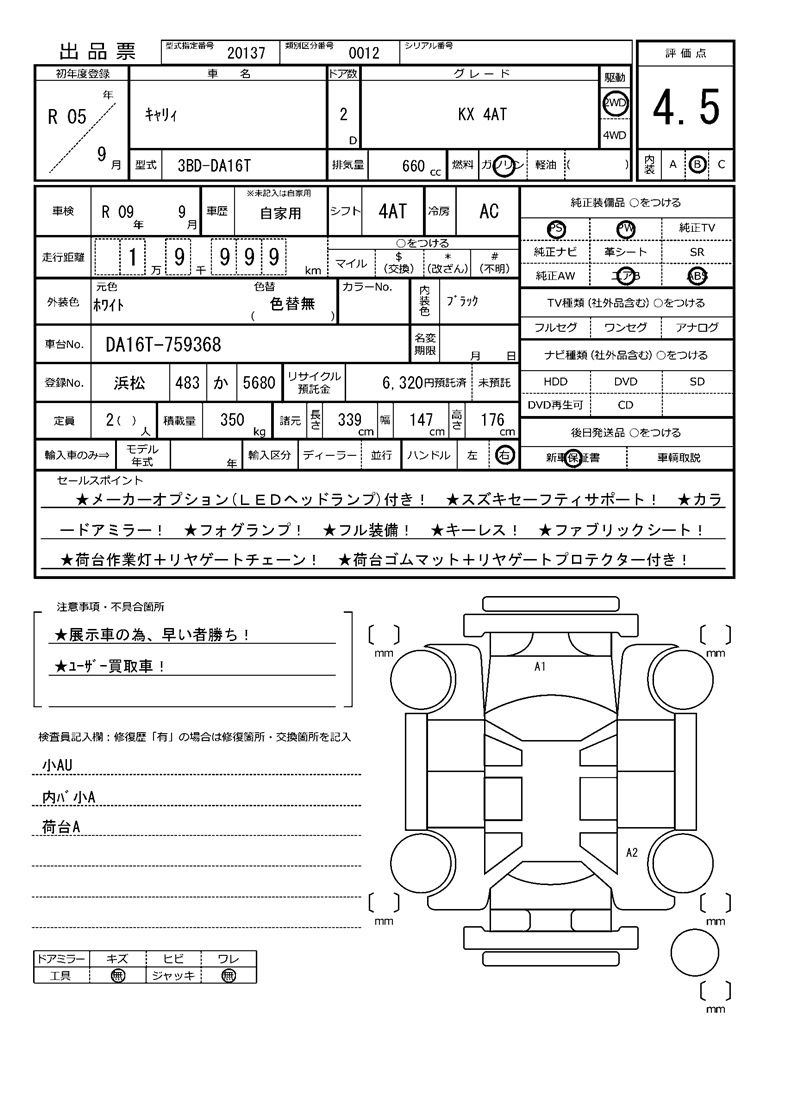 出品票 型式指定番号 20137 類別区分番号 0012 シリアル番号 評価点
初年度登録 車名 ドア数 グレード 駆動
R 05 年 9 月 キャリィ 2 D KX 4AT 2WD 4WD 4.5
型式 3BD-DA16T 排気量 660 cc 燃料 ガソリン 軽油 ( ) 内装 A B C
車検 R 09 年 9 月 車歴 ※未記入は自家用 自家用 シフト 4AT 冷房 AC 純正装備品 ○をつける
PS PW 純正TV
走行距離 1 万 9 千 9 9 9 km ○をつける
マイル $ (交換) * (改ざん) # (不明)
純正ナビ 革シート SR
純正AW エアB ABS
外装色 元色 ホワイト 色替 ( 色替無 ) カラーNo. 内装色 ブラック
TV種類 (社外品含む) ○をつける
フルセグ ワンセグ アナログ
車台No. DA16T-759368 名変期限 月 日
ナビ種類 (社外品含む) ○をつける
登録No. 浜松 483 か 5680 リサイクル預託金 6,320円預託済 未預託
HDD DVD SD
DVD再生可 CD
定員 2( ) 人 積載量 350 kg 諸元 長さ 339 cm 幅 147 cm 高さ 176 cm
後日発送品 ○をつける
輸入車のみ⇒ モデル年式 年 輸入区分 ディーラー 並行 ハンドル 左 右
新車保証書 車輌取説
セールスポイント
★メーカーオプション(LEDヘッドランプ)付き! ★スズキセーフティサポート! ★カラ
ードアミラー! ★フォグランプ! ★フル装備! ★キーレス! ★ファブリックシート!
★荷台作業灯+リヤゲートチェーン! ★荷台ゴムマット+リヤゲートプロテクター付き!
注意事項・不具合箇所
★展示車の為、早い者勝ち!
★ユーザー買取車!
検査員記入欄:修復歴「有」の場合は修復箇所・交換箇所を記入
小AU
内バ小A
荷台A
ドアミラー キズ ヒビ ワレ
工具 無 ジャッキ 無
mm mm
A1
A2
mm mm
mm